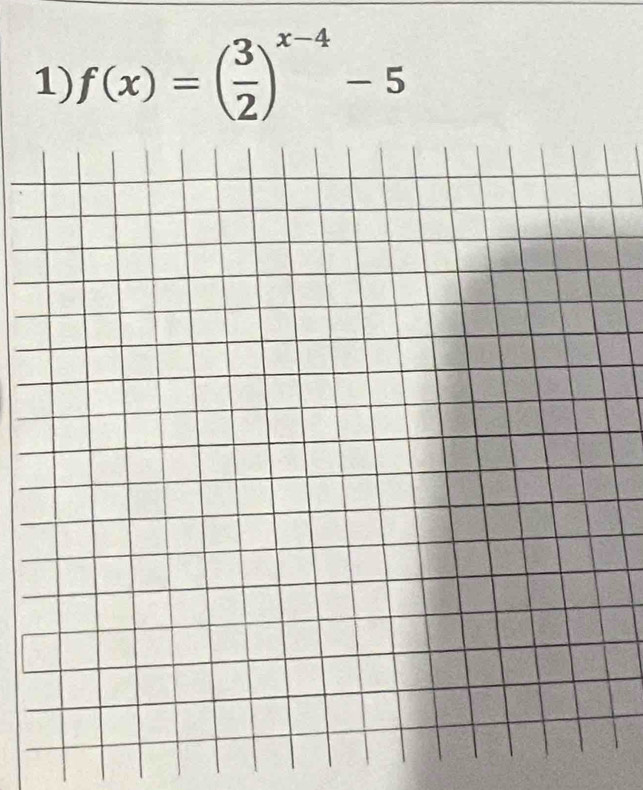 1) f(x) = (3/2)^(x−4) − 5